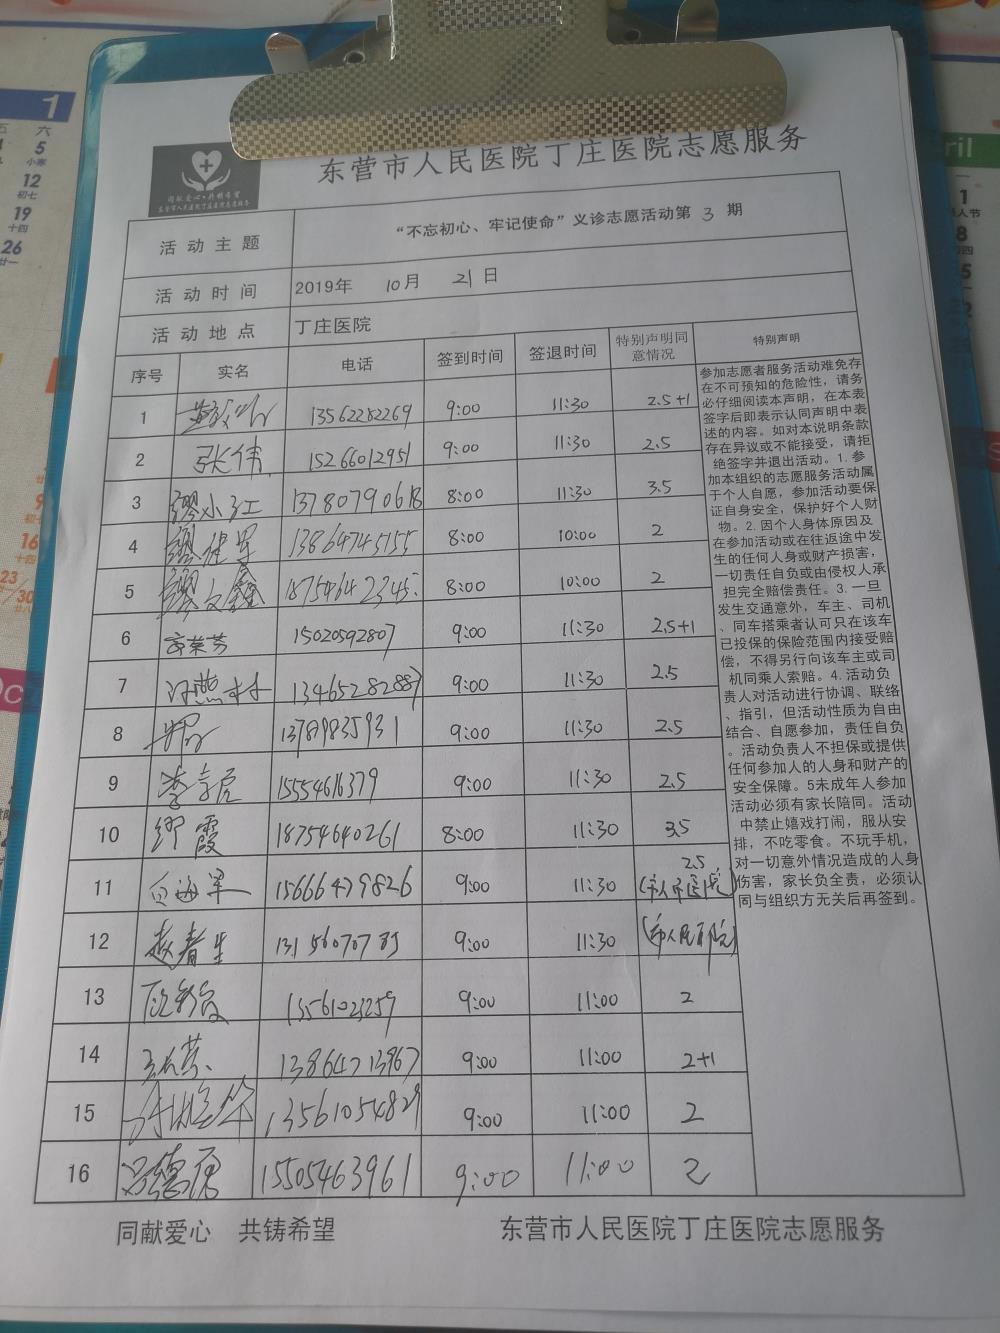 东营市人民医院丁庄医院志愿服务
活动主题 “不忘初心、牢记使命”义诊志愿活动第 3 期
活动时间 2019年 10月 21日
活动地点 丁庄医院
序号 实名 电话 签到时间 签退时间 特别声明同意情况 特别声明
1 13562282269 9:00 11:30 2.5+1
2 张伟 15266012951 9:00 11:30 2.5
3 缪小红 13780790618 8:00 11:30 3.5
4 缪建军 13864745155 8:00 10:00 2
5 缪文鑫 18754642345 8:00 10:00 2
6 15020592807 9:00 11:30 2.5+1
7 13465282887 9:00 11:30 2.5
8 13789835931 9:00 11:30 2.5
9 15554616379 9:00 11:30 2.5
10 缪霞 18754640261 8:00 11:30 3.5
11 15666479826 9:00 11:30 2.5
12 赵春生 13156070785 9:00 11:30 (市人民医院)
13 13561023259 9:00 11:00 2
14 13864713967 9:00 11:00 2+1
15 13561054829 9:00 11:00 2
16 吕德房 15505463961 9:00 11:00 2
参加志愿者服务活动难免存
在不可预知的危险性，请务
必仔细阅读本声明，在本表
签字后即表示认同声明中表
述的内容。如对本说明条款
存在异议或不能接受，请拒
绝签字并退出活动。1. 参
加本组织的志愿服务活动属
于个人自愿，参加活动要保
证自身安全，保护好个人财
物。2. 因个人身体原因及
在参加活动或在往返途中发
生的任何人身或财产损害，
一切责任自负或由侵权人承
担完全赔偿责任。3. 一旦
发生交通意外，车主、司机
、同车搭乘者认可只在该车
已投保的保险范围内接受赔
偿，不得另行向该车主或司
机同乘人索赔。4. 活动负
责人对活动进行协调、联络
、指引，但活动性质为自由
结合、自愿参加，责任自负
。活动负责人不担保或提供
任何参加人的人身和财产的
安全保障。5未成年人参加
活动必须有家长陪同。活动
中禁止嬉戏打闹，服从安
排，不吃零食。不玩手机，
对一切意外情况造成的人身
伤害，家长负全责，必须认
同与组织方无关后再签到。
同献爱心 共铸希望 东营市人民医院丁庄医院志愿服务